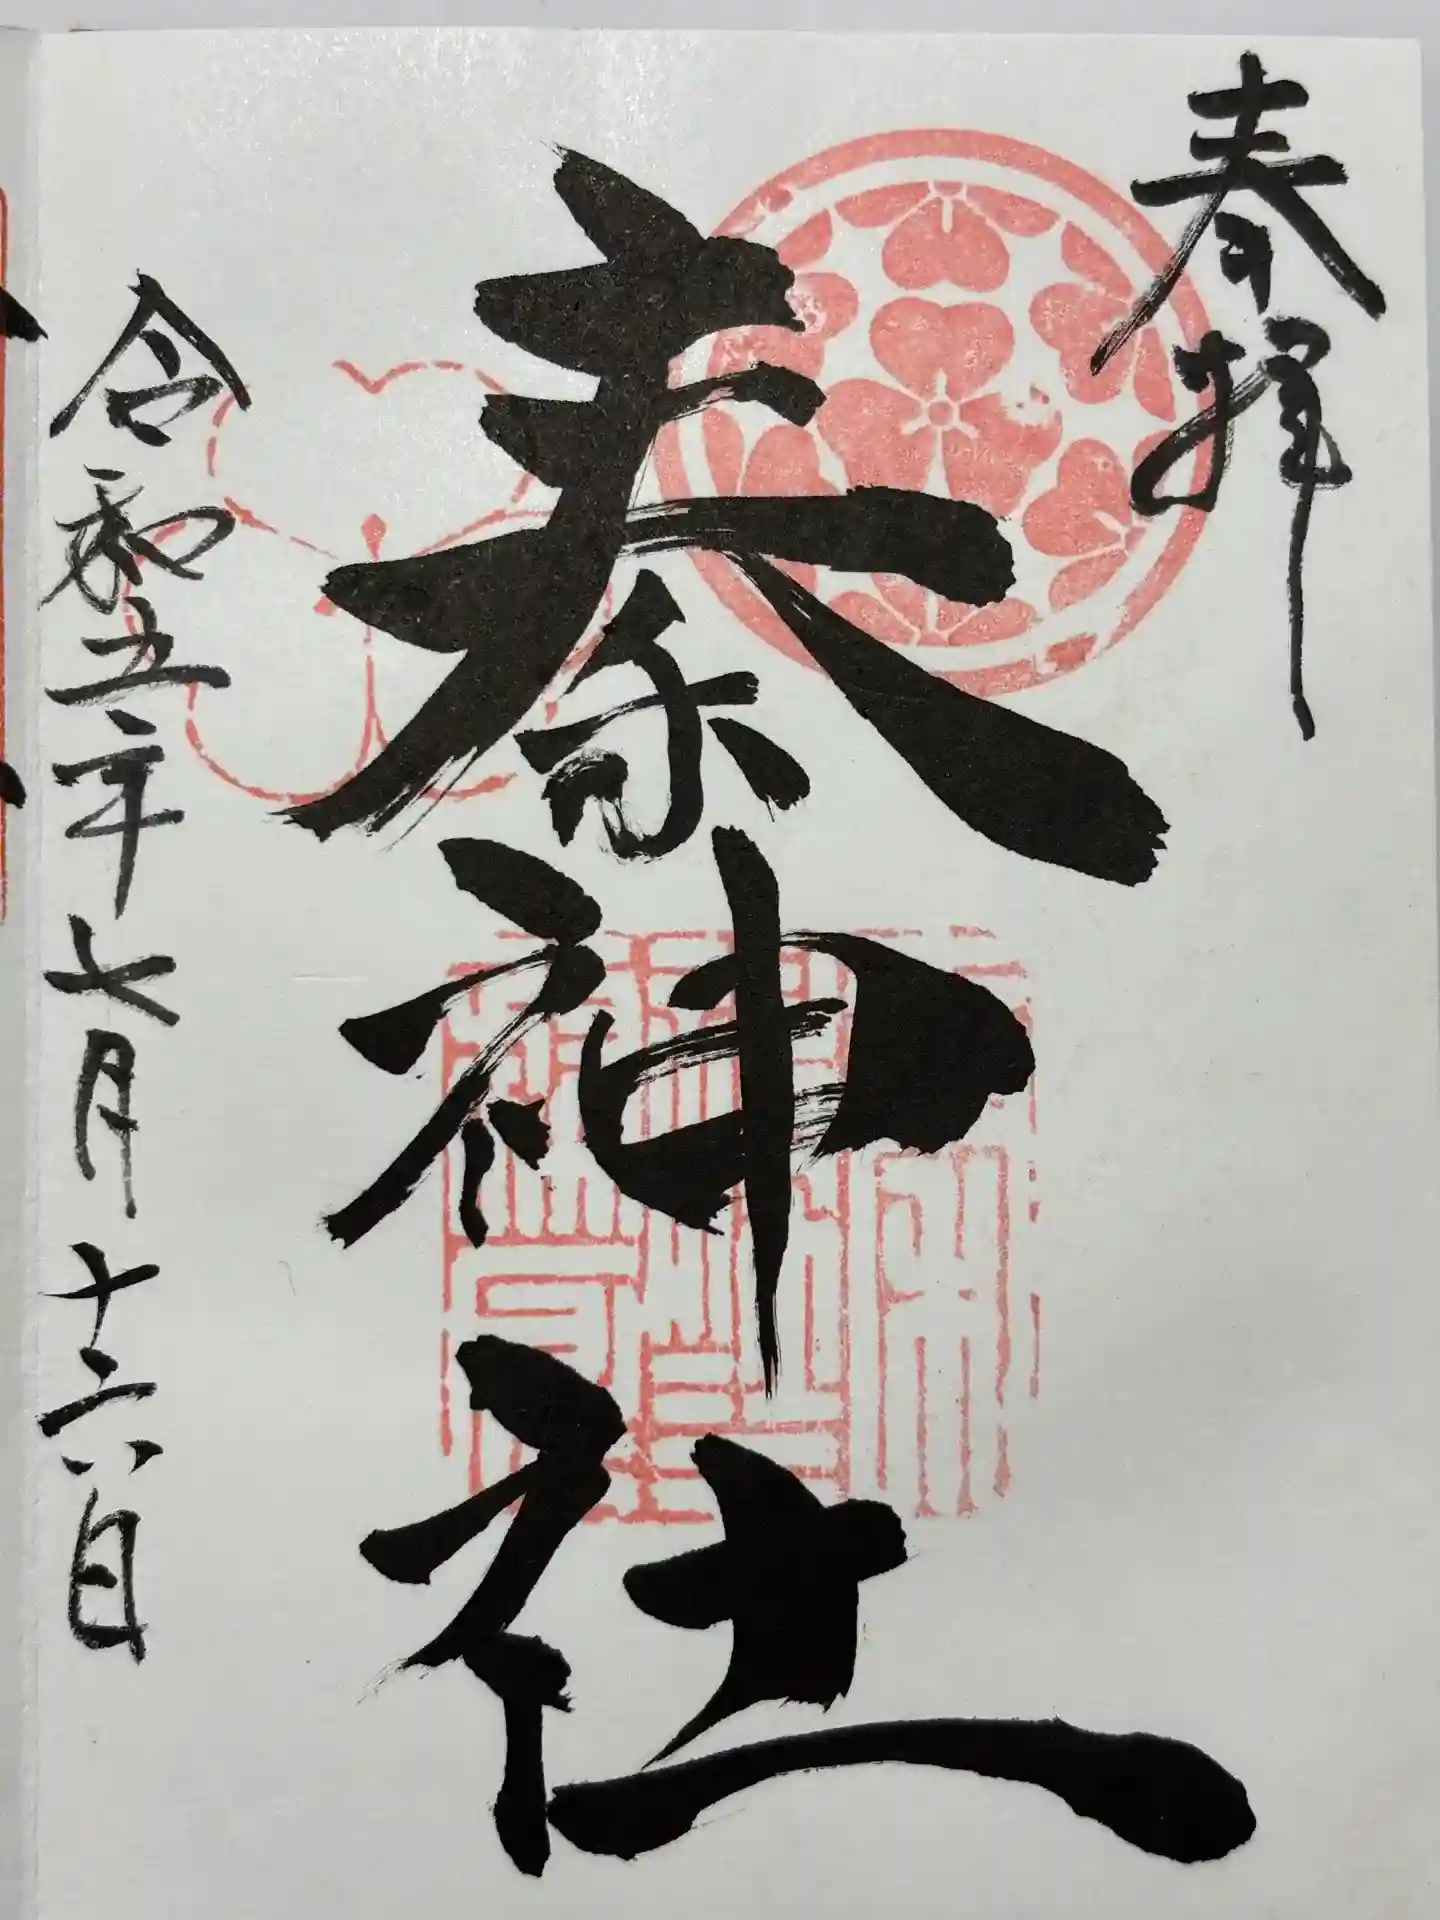 奉拝
秦神社
令和五年七月十六日